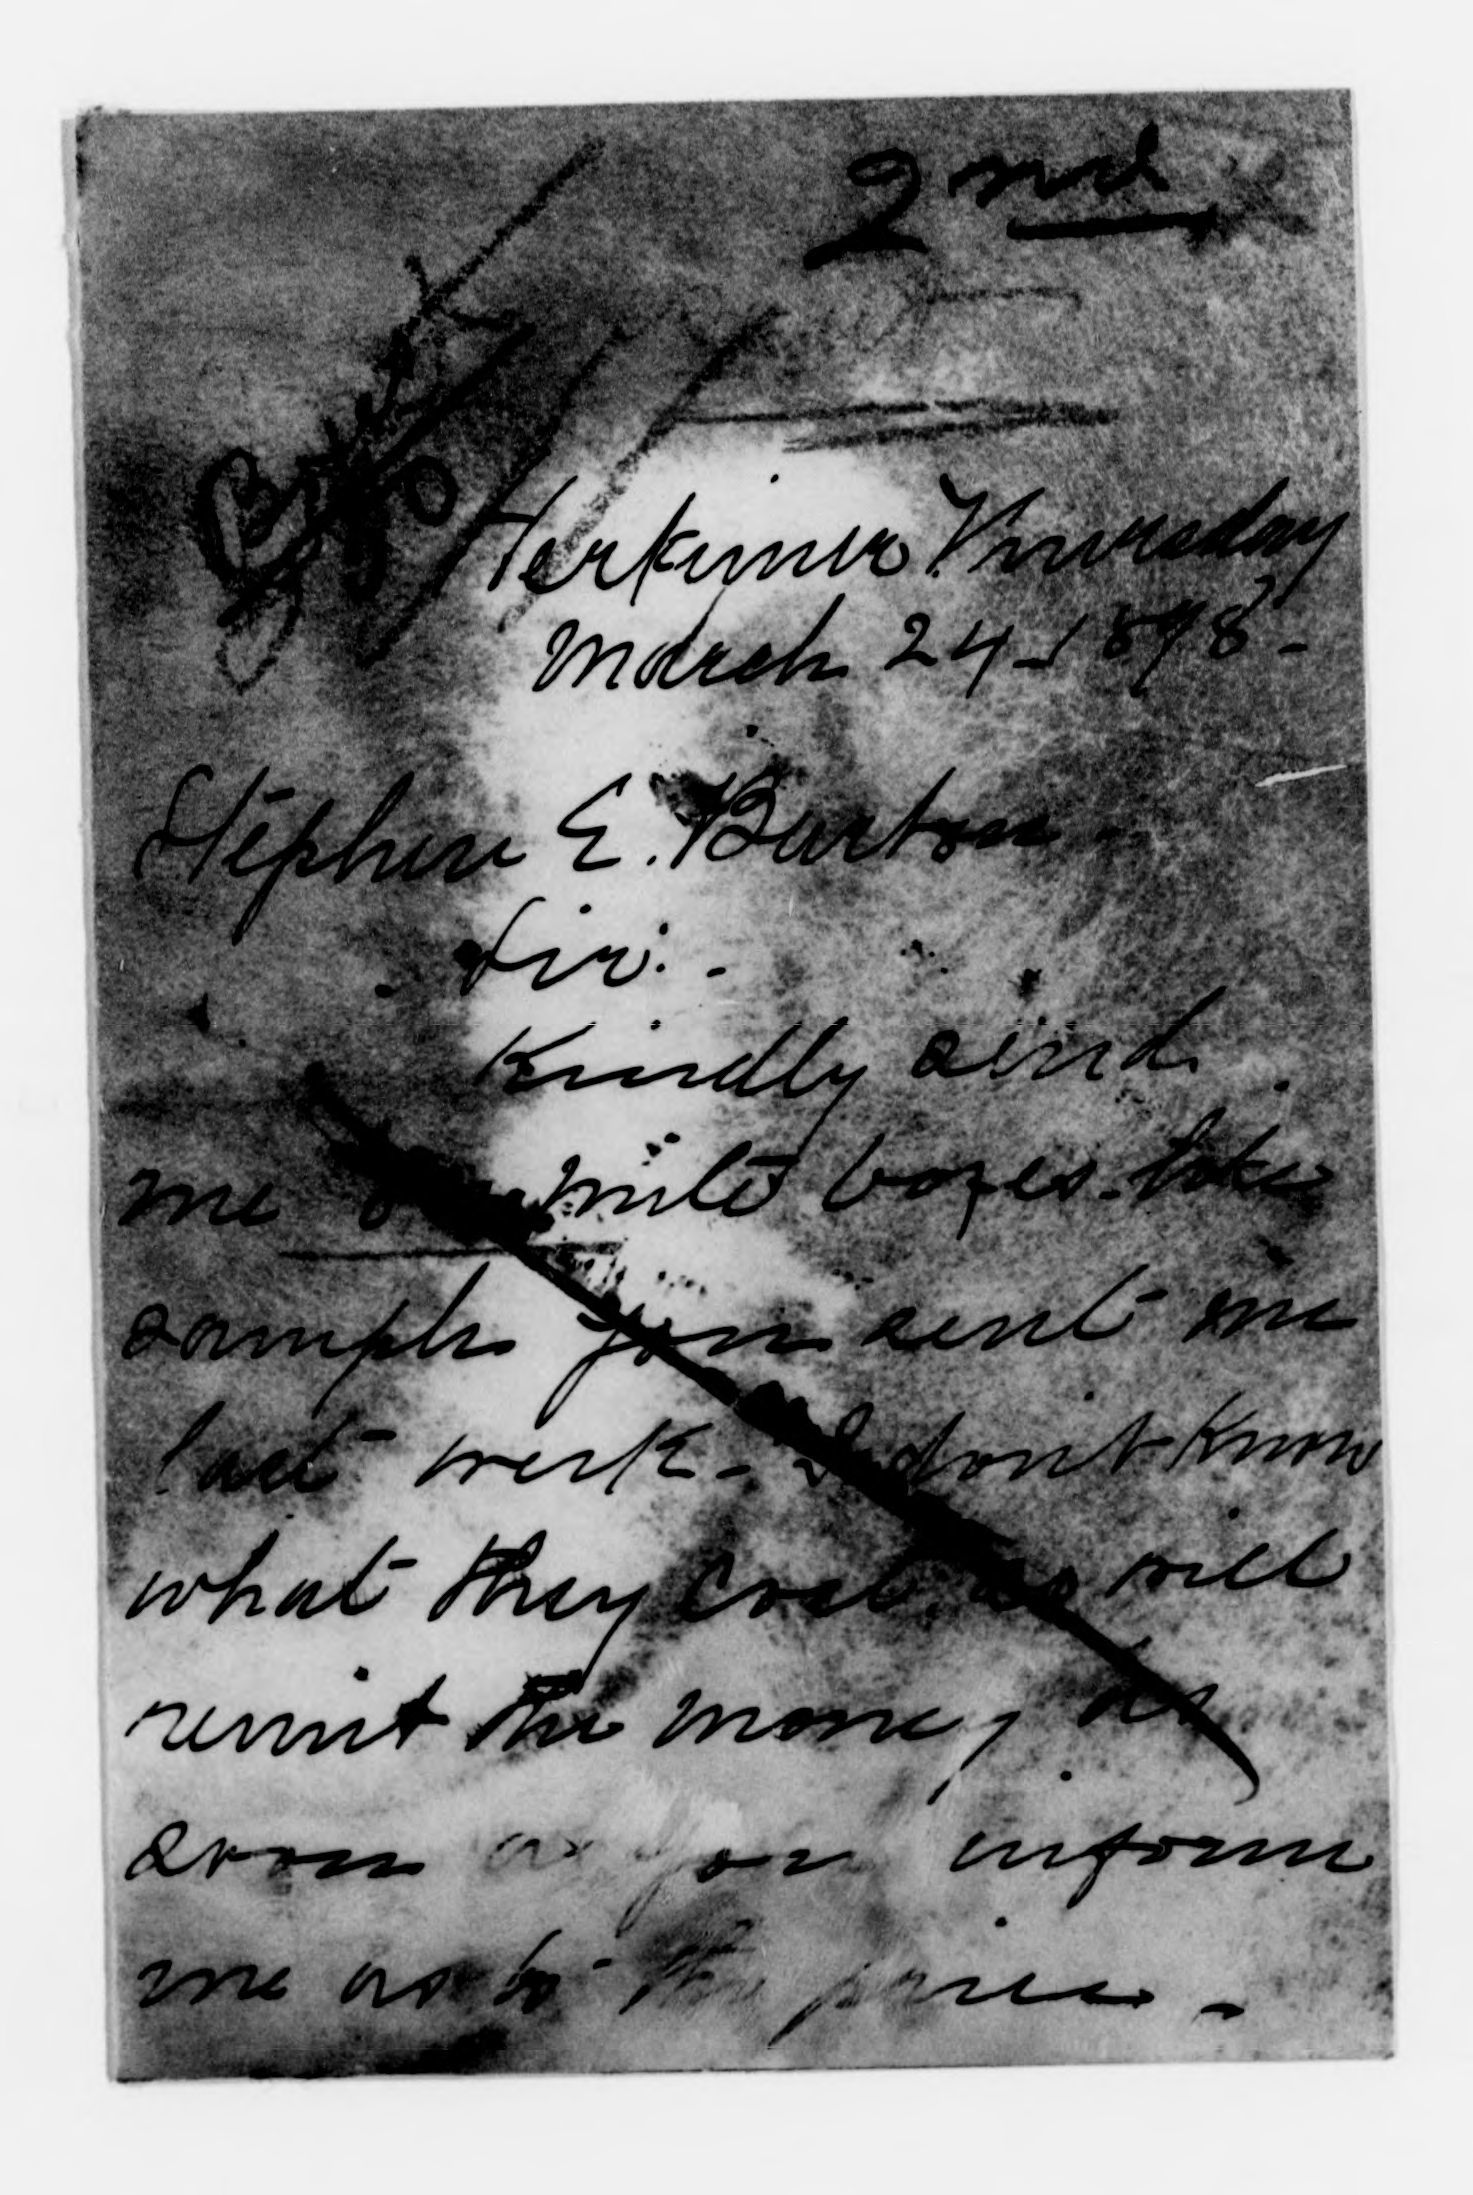 2nd
Herkimer Thursday
March 24-1898-
Stephen E. Barton-
Sir:-
Kindly send
me mite boxes. like
sample you sent me
last week- I don't know
what they cost. so will
remit the money as
soon as you inform
me as to the price-